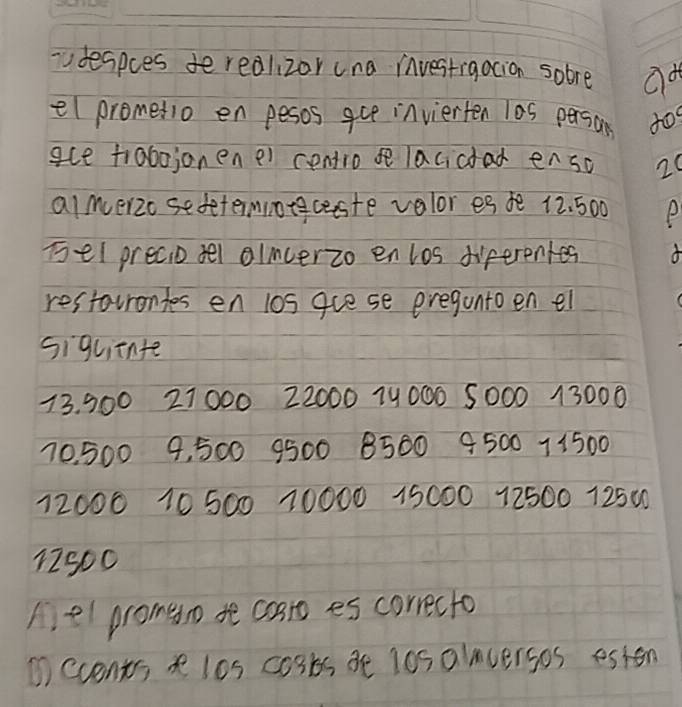 despces de realizar una investigacion sobre
el prometio en pesos gce invierten las persons
gce trabajan en el centro de la cicdad en so
almerzo se determino gce este valor es de 12.500
el precio del almcerzo en los diferentes
restourontes en los gce se pregunto en el
siguiente
13.900 21000 22000 14000 5000 13000
10.500 9.500 9500 8500 9500 11500
12000 10500 10000 15000 12500 12500
12500
A) el promedio de costo es correcto
B) ccentos de los costos de los almuersos esten